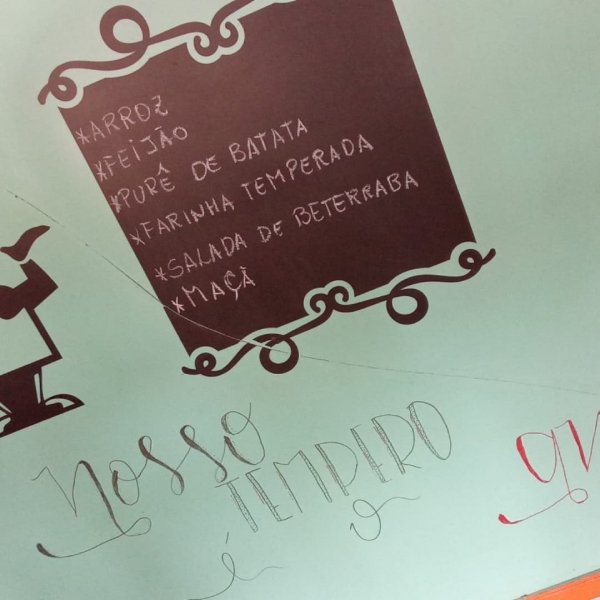 *ARROZ
*FEIJÃO
*PURÊ DE BATATA
*FARINHA TEMPERADA
*SALADA DE BETERRABA
*MAÇÃ
Nosso
TEMPERO
é